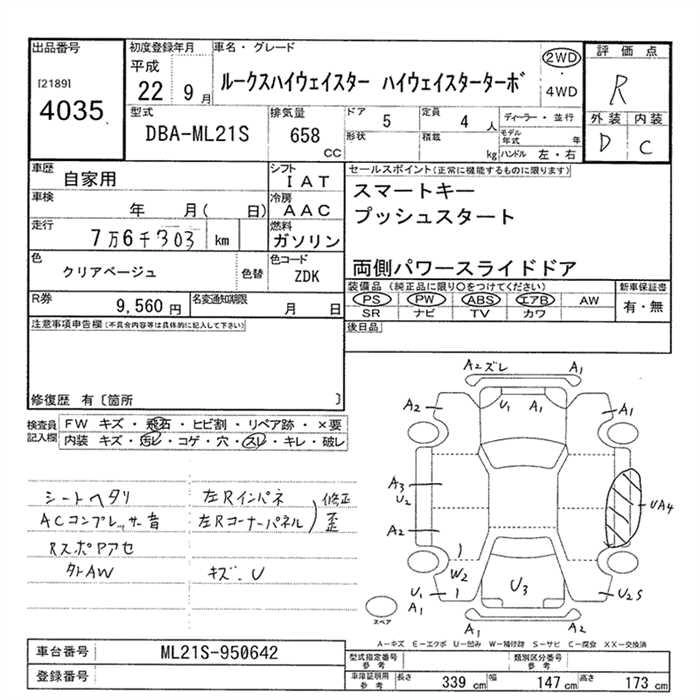 出品番号
[2189]
4035
初度登録年月
平成
22 9月
車名・グレード
ルークスハイウェイスター ハイウェイスターターボ
2WD
・
4WD
評価点
R
外装 内装
D C
型式
DBA-ML21S
排気量
658
CC
ドア 5
形状
定員 4 人
積載 kg
ディーラー・並行
モデル年式 年
ハンドル 左・右
車歴
自家用
シフト
IAT
車検
年 月( 日)
冷房
AAC
走行
7万6千303 km
燃料
ガソリン
色
クリアベージュ
色替
色コード
ZDK
R券
9,560 円
名変通知期限
月 日
セールスポイント(正常に機能するものに限ります)
スマートキー
プッシュスタート
両側パワースライドドア
装備品 (純正品に限り○をつけてください)
PS PW ABS エアB AW
SR ナビ TV カワ
新車保証書
有・無
後日品
注意事項申告欄(不具合内容等は具体的に記入して下さい)
修復歴 有〔箇所 〕
検査員
記入欄
FW キズ・飛石・ヒビ割・リペア跡・×要
内装 キズ・汚レ・コゲ・穴・スレ・キレ・破レ
シートヘタリ
ACコンプレッサー音
RスポPアセ
外AW
左Rインパネ
左Rコーナーパネル
修正
歪
キズ・U
A2ズレ A1
A2 U1 A1 A1
A3
U2
UA4
A2
W2
U1
A1
U3
U2S
A1 A2
スペア
A-キズ E-エクボ U-凹み W-補修跡 S-サビ C-腐食 XX-交換済
車台番号
ML21S-950642
登録番号
型式指定番号
参考
類別区分番号
参考
車庫証明用
参考
長さ 339 cm 幅 147 cm 高さ 173 cm